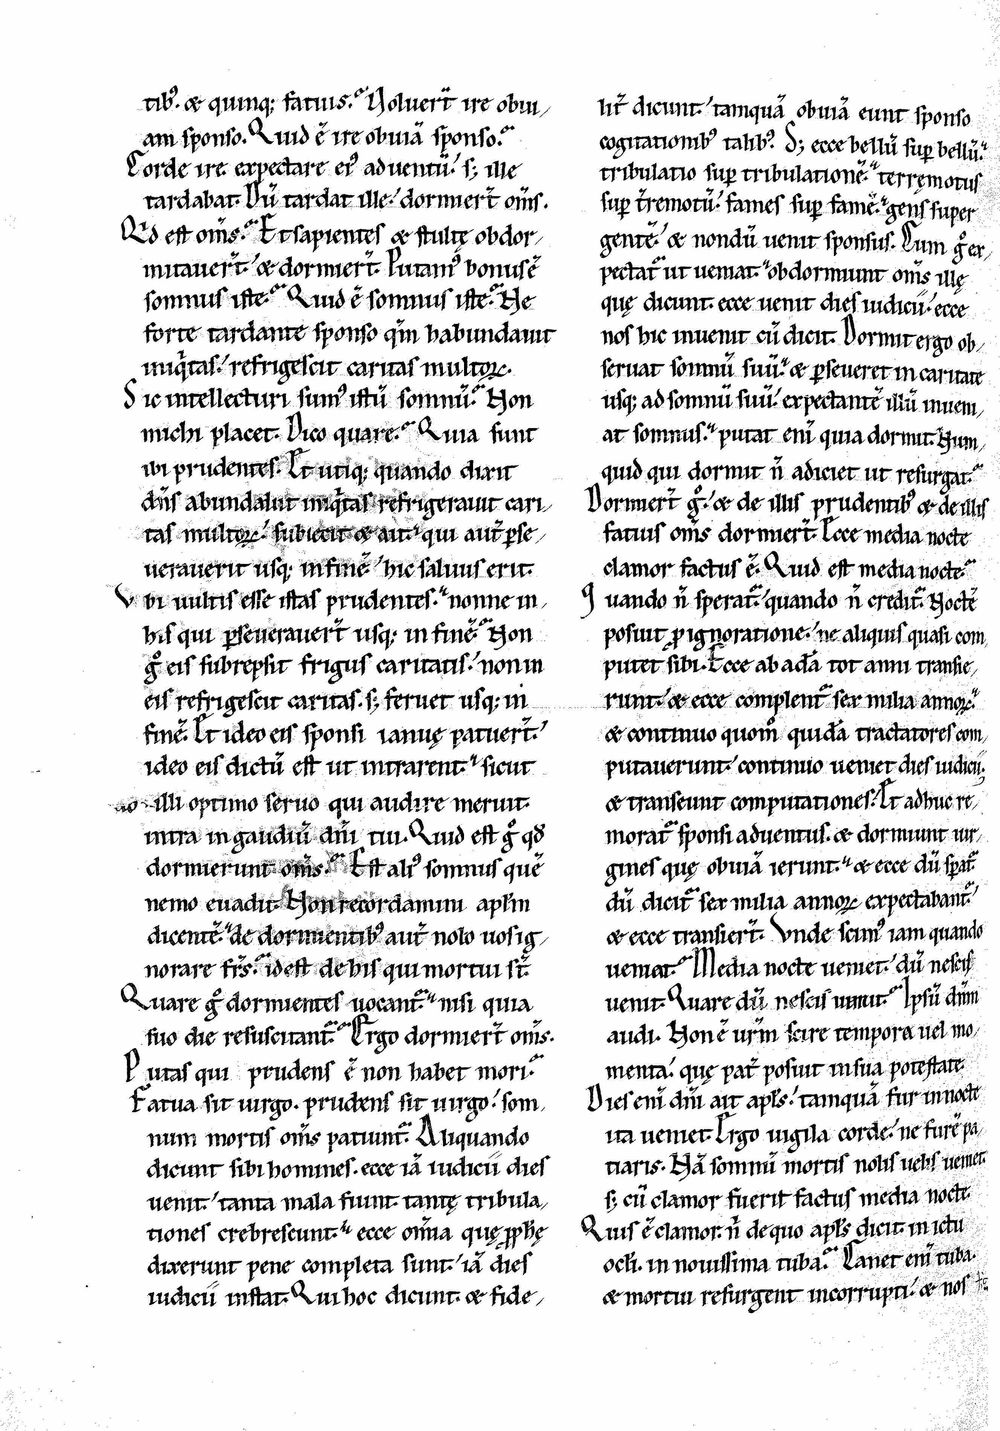 tib᷒. & quinq; fatuis. Voluer̄t ire obui-
am sponso. Quid ē ire obuiā sponso.
Corde ire. expectare ei᷒ aduentū. s; ille
tardabat. Dū tardat ille. dormier̄t om̄s.
Qd̄ est om̄s. Et sapientes & stultę obdor-
mitauer̄t. & dormier̄t. Putam᷒ bonus ē
somnus iste. Quid ē somnus iste. Ne
forte tardante sponso qm̄ habundauit
iniq̄tas. refrigescit caritas multoꝝ.
Sic intellecturi sum᷒ istū somnū. Non
michi placet. Dico quare. Quia sunt
ibi prudentes. Et utiq; quando dixit
dn̄s abundabit iniq̄tas refrigerauit cari-
tas multoꝝ. subiecit & ait. qui aut̄ ꝑse-
uerauerit usq; in finē. hic saluus erit.
Vbi uultis esse istas prudentes. nonne in
his qui ꝑseuerauer̄t usq; in finē. Non
g̊ eis subrepsit frigus caritatis. non in
eis refrigescit caritas. s; feruet usq; in
finē. Et ideo eis sponsi ianuę patuer̄t.
ideo eis dictū est ut intrarent. sicut
illi optimo seruo qui audire meruit.
intra in gaudiū dn̄i tui. Quid est g̊ qd̄
dormierunt om̄s. Est ali᷒ somnus quē
nemo euadit. Non recordamini apl̄m
dicentē. de dormientib᷒ aut̄ nolo uos ig-
norare fr̄s. id est de his qui mortui st̄.
Quare g̊ dormientes uocant̄. nisi quia
suo die resuscitant̄. Ergo dormier̄t om̄s.
Putas qui prudens ē non habet mori.
Fatua sit uirgo. prudens sit uirgo. som-
num mortis om̄s patiunt̄. Aliquando
dicunt sibi homines. ecce iā iudicii dies
uenit. tanta mala fiunt. tantę tribula-
tiones crebrescunt. ecce om̄ia quę ꝓph̄ę
dixerunt pene completa sunt. iā dies
iudicii instat. Qui hoc dicunt. & fide-
lit̄ dicunt. tamquā obuiā eunt sponso
cogitationib᷒ talib᷒. S; ecce bellū suꝑ bellū.
tribulatio suꝑ tribulationē. terręmotus
suꝑ t̄remotū. fames suꝑ famē. gens super
gentē. & nondū uenit sponsus. Cum g̊ ex-
pectat̄ ut ueniat. obdormiunt om̄s illę
quę dicunt. ecce uenit dies iudicii. ecce
nos hic inuenit cū dicit. Dormit ergo ob-
seruat somnū suū. & ꝑseueret in caritate
usq; ad somnū suū. expectantē illū inueni-
at somnus. putat eni᷒ quia dormit. Num-
quid qui dormit n̄ adiciet ut resurgat.
Dormier̄t g̊. & de illis prudentib᷒ & de illis
fatuis om̄s dormier̄t. Ecce media nocte
clamor factus ē. Quid est media nocte.
Quando n̄ sperat̄. quando n̄ credit̄. Noctē
posuit ꝓ ignoratione. ne aliquis quasi com-
putet sibi. Ecce ab adā tot anni transie-
runt. & ecce complent̄ sex milia annoꝝ.
& continuo quom̊ quidā tractatores com-
putauerunt. continuo ueniet dies iudicii.
& transeunt computationes. Et adhuc re-
morat̄ sponsi aduentus. & dormiunt uir-
gines quę obuiā ierunt. & ecce dū sꝑat̄.
dū dicit̄ sex milia annoꝝ expectabant̄.
& ecce transier̄t. Vnde scim᷒ iam quando
ueniat. Media nocte ueniet. dū nescis
uenit. Quare dū nescis uenit. Ipsū dn̄m
audi. Non ē ur̄m scire tempora uel mo-
menta. quę pat̄ posuit in sua potestate.
Dies eni᷒ dn̄i ait apl̄s. tamquā fur in nocte
ita ueniet. Ergo uigila corde. ne furē pa-
tiaris. Nā somnū mortis nolis uelis ueniet
s; cū clamor fuerit factus media nocte.
Quis ē clamor. n̄ de quo apl̄s dicit. in ictu
ocl̄i. in nouissima tuba. Canet eni᷒ tuba.
& mortui resurgent incorrupti. & nos